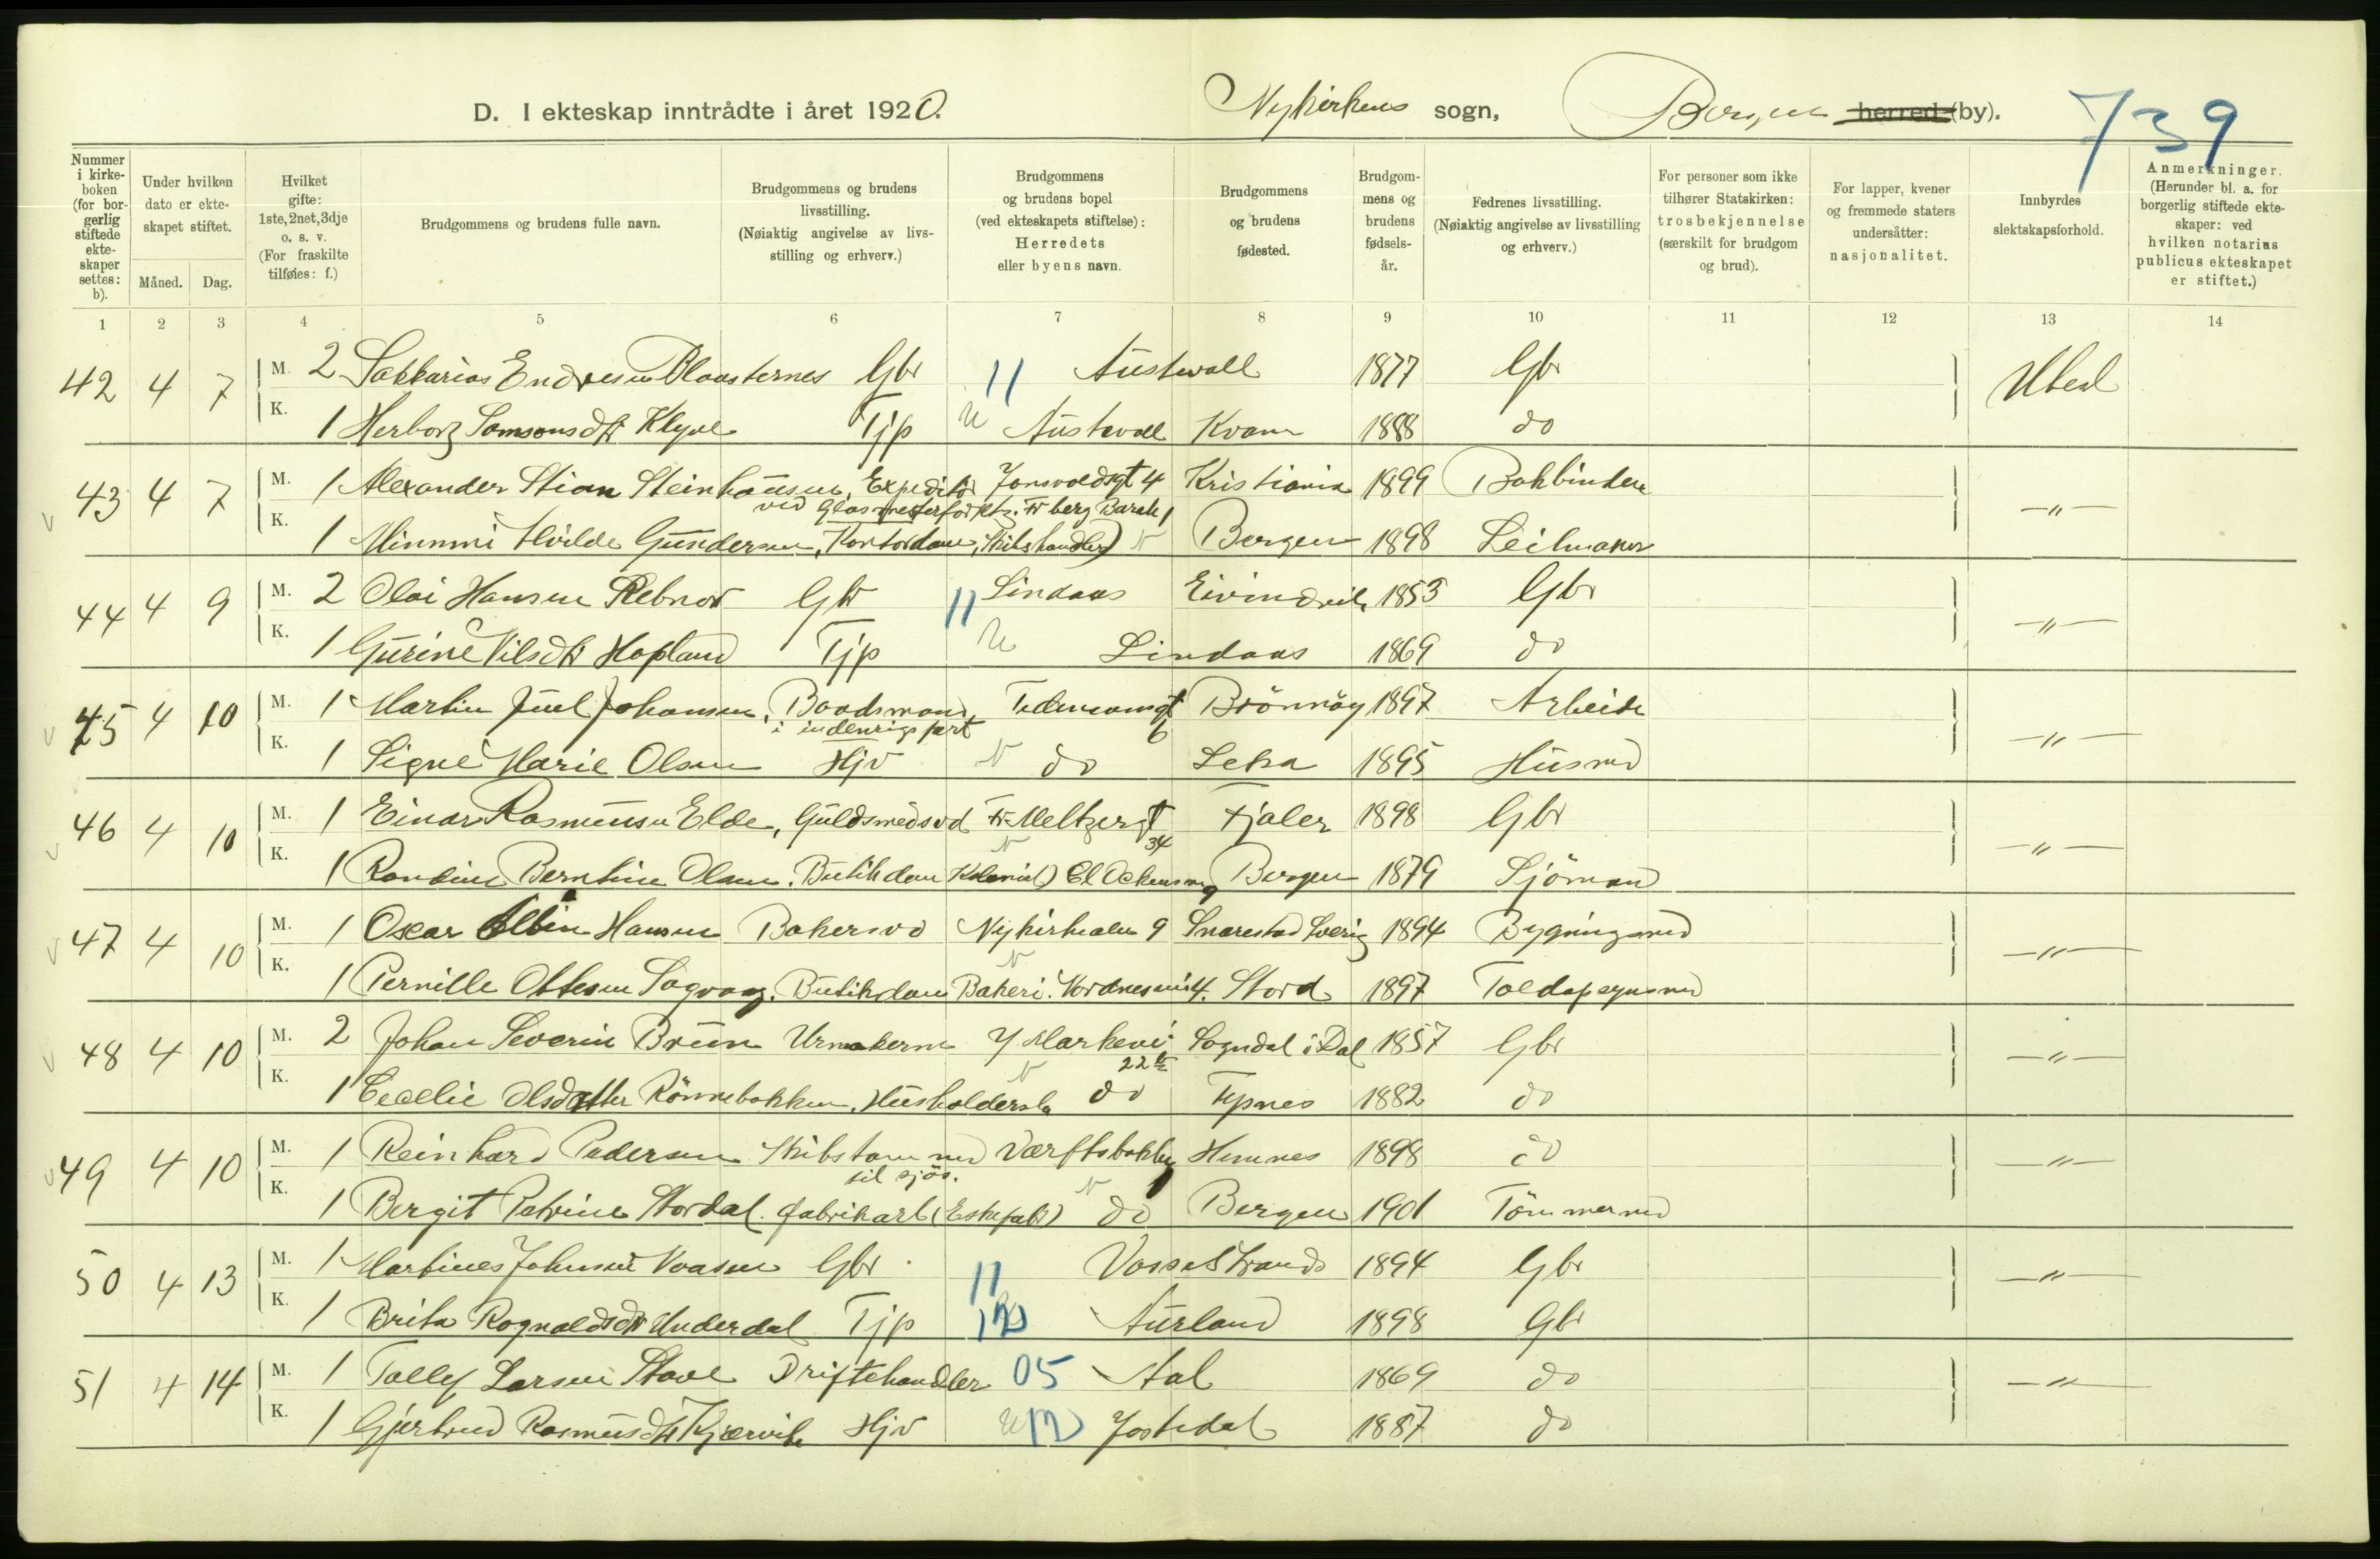 D. I ekteskap inntrådte i året 1920. Nykirkens sogn, Bergen herred (by). 739
Nummer i kirke-boken (for bor-gerlig stiftede ekte-skaper settes: b).
Under hvilken dato er ekte-skapet stiftet.
Måned. Dag.
Hvilket gifte: 1ste, 2net, 3dje o. s. v. (For fraskilte tilføies: f.)
Brudgommens og brudens fulle navn.
Brudgommens og brudens livsstilling. (Nøiaktig angivelse av livs-stilling og erhverv.)
Brudgommens og brudens bopel (ved ekteskapets stiftelse): Herredets eller byens navn.
Brudgommens og brudens fødested.
Brudgom-mens og brudens fødsels-år.
Fedrenes livsstilling. (Nøiaktig angivelse av livsstilling og erhverv.)
For personer som ikke tilhører Statskirken: trosbekjennelse (særskilt for brudgom og brud).
For lapper, kvener og fremmede staters undersåtter: nasjonalitet.
Innbyrdes slektskapsforhold.
Anmerkninger. (Herunder bl. a. for borgerlig stiftede ekte-skaper: ved hvilken notarius publicus ekteskapet er stiftet.)
1 2 3 4 5 6 7 8 9 10 11 12 13 14
42 4 7 M. 2 Sakkarias Endresen Gbr 11 Austevoll 1877 Gbr
K. 1 Herborg Samsonsdtr Klyve Tjp Austevoll Kvam 1888 do
43 4 7 M. 1 Alexander Stian Steinhausen, Expeditør Jonsvoldsgt 4 Kristiania 1899 Bokbinder -"-
ved Glasmesterforretn.
K. 1 Hilda Gundersen, Kontordame, Bergen 1898 Seilmaker
44 4 9 M. 2 Olai Hansen Gbr 11 Lindaas Eivindvik 1853 Gbr -"-
K. 1 Gurine Nilsdtr Hopland Tjp Lindaas 1869 do
45 4 10 M. 1 Martin Juel Johansen, Baadsmand Brönnöy 1897 Arbeider -"-
i indenrigsfart 6
K. 1 Signe Marie Olsen Hjv do Leka 1895 Husmd
46 4 10 M. 1 Einar Rasmussen Elde, Guldsmedsvd Fr Meltzersgt Fjaler 1898 Gbr -"-
34
K. 1 Berntine Olsen. Butikdame Bergen 1879 Sjömand
47 4 10 M. 1 Oscar Albin Hansen Bakersvd Nykirkealm 9 Snarestad Sverig 1894 Bygningsmd -"-
K. 1 Pernille Ottesen Sagvaag. Butikdame Bakeri. Stord 1897 Toldopsynsmd
48 4 10 M. 2 Johan Severin Bruun Urmakerm Y Markevei Sogndal i Dal 1857 Gbr -"-
22
K. 1 Cecelie Olsdatter Rönnebakken, Husholderske do 1882 do
49 4 10 M. 1 Reinhard Pedersen Skibstømmermd Værftsbakken Hemnes 1898 do -"-
til sjös.
K. 1 Bergit Petrine Stordal. fabrikarb (Eskefabr) do Bergen 1901 Tömmermd
50 4 13 M. 1 Martines Johnsen Gbr 11 Vossestrand 1894 Gbr -"-
K. 1 Brita Rognaldsdtr Underdal Tjp 12 Aurland 1898 Gbr
51 4 14 M. 1 Tollef Larsen Stave Driftehandler 05 Aal 1869 do -"-
K. 1 Gjertrud Rasmusdtr Kjærvik Hjv 12 Jostedal 1887 do